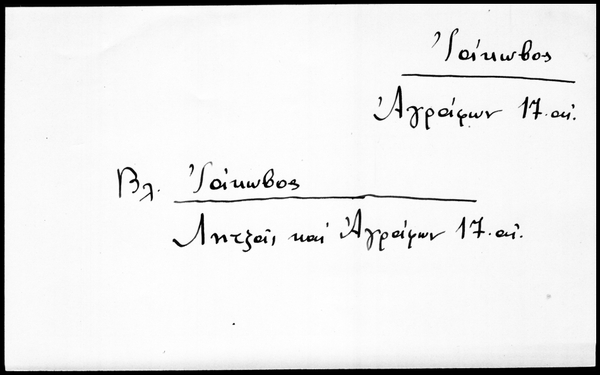 Ἰάκωβος
Ἀγράφων 17. αἰ.
Βλ. Ἰάκωβος
Λητζᾶς καὶ Ἀγράφων 17. αἰ.